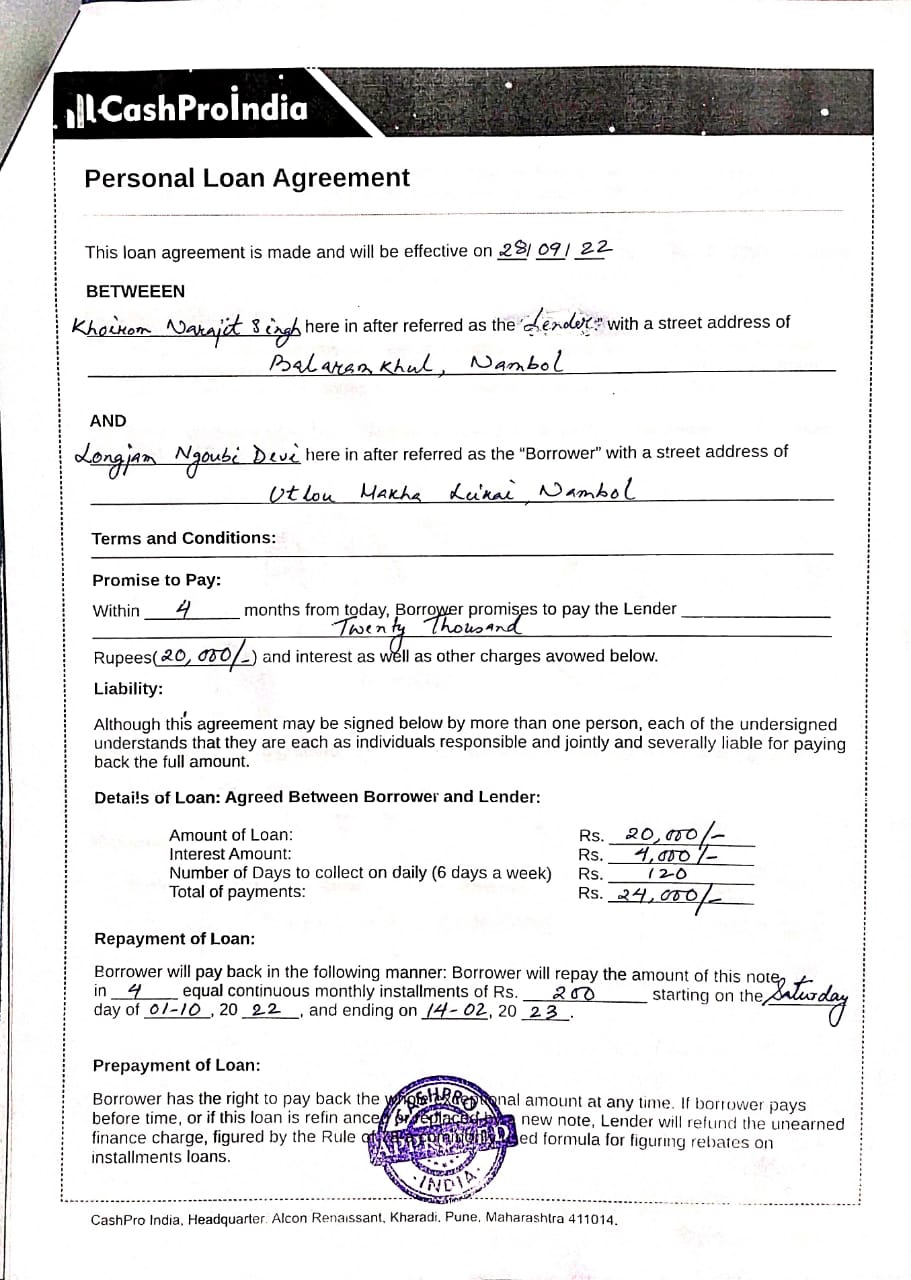 CashProIndia
Personal Loan Agreement
This loan agreement is made and will be effective on 28/ 09/ 22
BETWEEEN
Khoirom Narajit Singh here in after referred as the "Lender" with a street address of
Balaram Khul, Nambol
AND
Longjam Ngoubi Devi here in after referred as the "Borrower" with a street address of
Utlou Makha Leikai, Nambol
Terms and Conditions:
Promise to Pay:
Within 4 months from today, Borrower promises to pay the Lender
Twenty Thousand
Rupees(20,000/-) and interest as well as other charges avowed below.
Liability:
Although this agreement may be signed below by more than one person, each of the undersigned
understands that they are each as individuals responsible and jointly and severally liable for paying
back the full amount.
Details of Loan: Agreed Between Borrower and Lender:
Amount of Loan: Rs. 20,000/-
Interest Amount: Rs. 4,000/-
Number of Days to collect on daily (6 days a week) Rs. 120
Total of payments: Rs. 24,000/-
Repayment of Loan:
Borrower will pay back in the following manner: Borrower will repay the amount of this note
in 4 equal continuous monthly installments of Rs. 200 starting on the Saturday
day of 01-10, 20 22, and ending on 14-02, 20 23.
Prepayment of Loan:
Borrower has the right to pay back the amount at any time. If borrower pays
before time, or if this loan is refin anced new note, Lender will refund the unearned
finance charge, figured by the Rule formula for figuring rebates on
installments loans.
CASHPRO
INDIA
CashPro India, Headquarter. Alcon Renaissant, Kharadi, Pune, Maharashtra 411014.